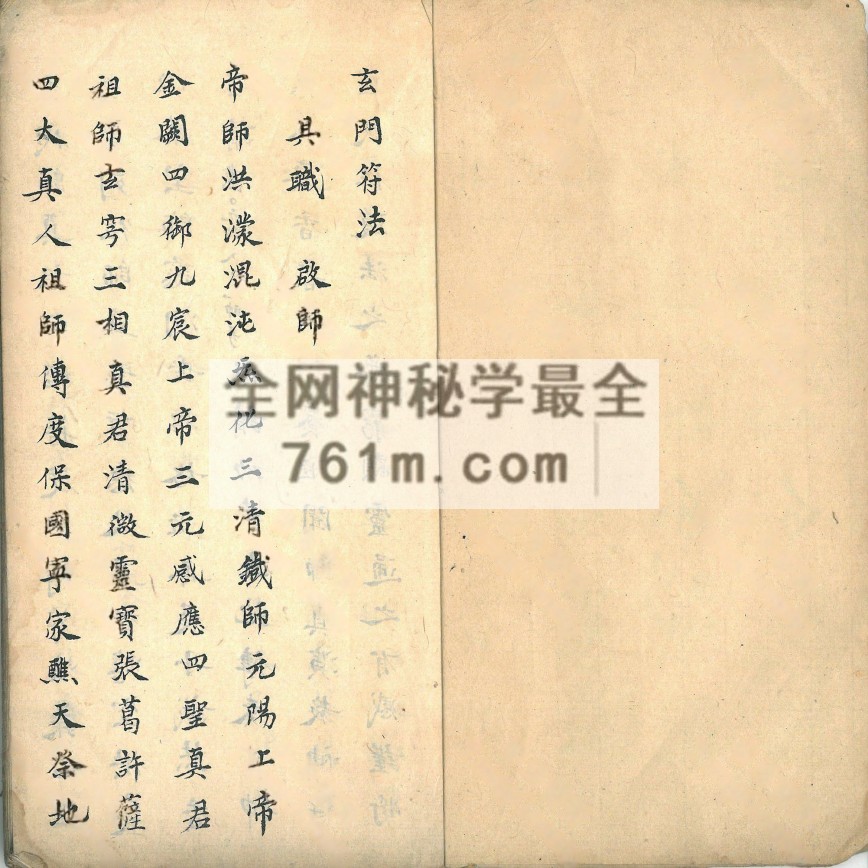 玄門符法
具職 啟師
帝師洪濛混沌炁化三清鍼師元陽上帝
金闕四御九宸上帝三元感應四聖真君
祖師玄穹三相真君清微靈寶張葛許薩
四大真人祖師傳度保國寧家醮天祭地
全网神秘学最全
761m.com